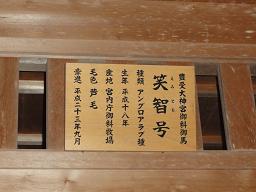 豊受大神宮御料御馬
えみ とも
笑智号
種類 アングロアラブ種
生年 平成十八年
産地 宮内庁御料牧場
毛色 芦毛
牽進 平成二十三年九月